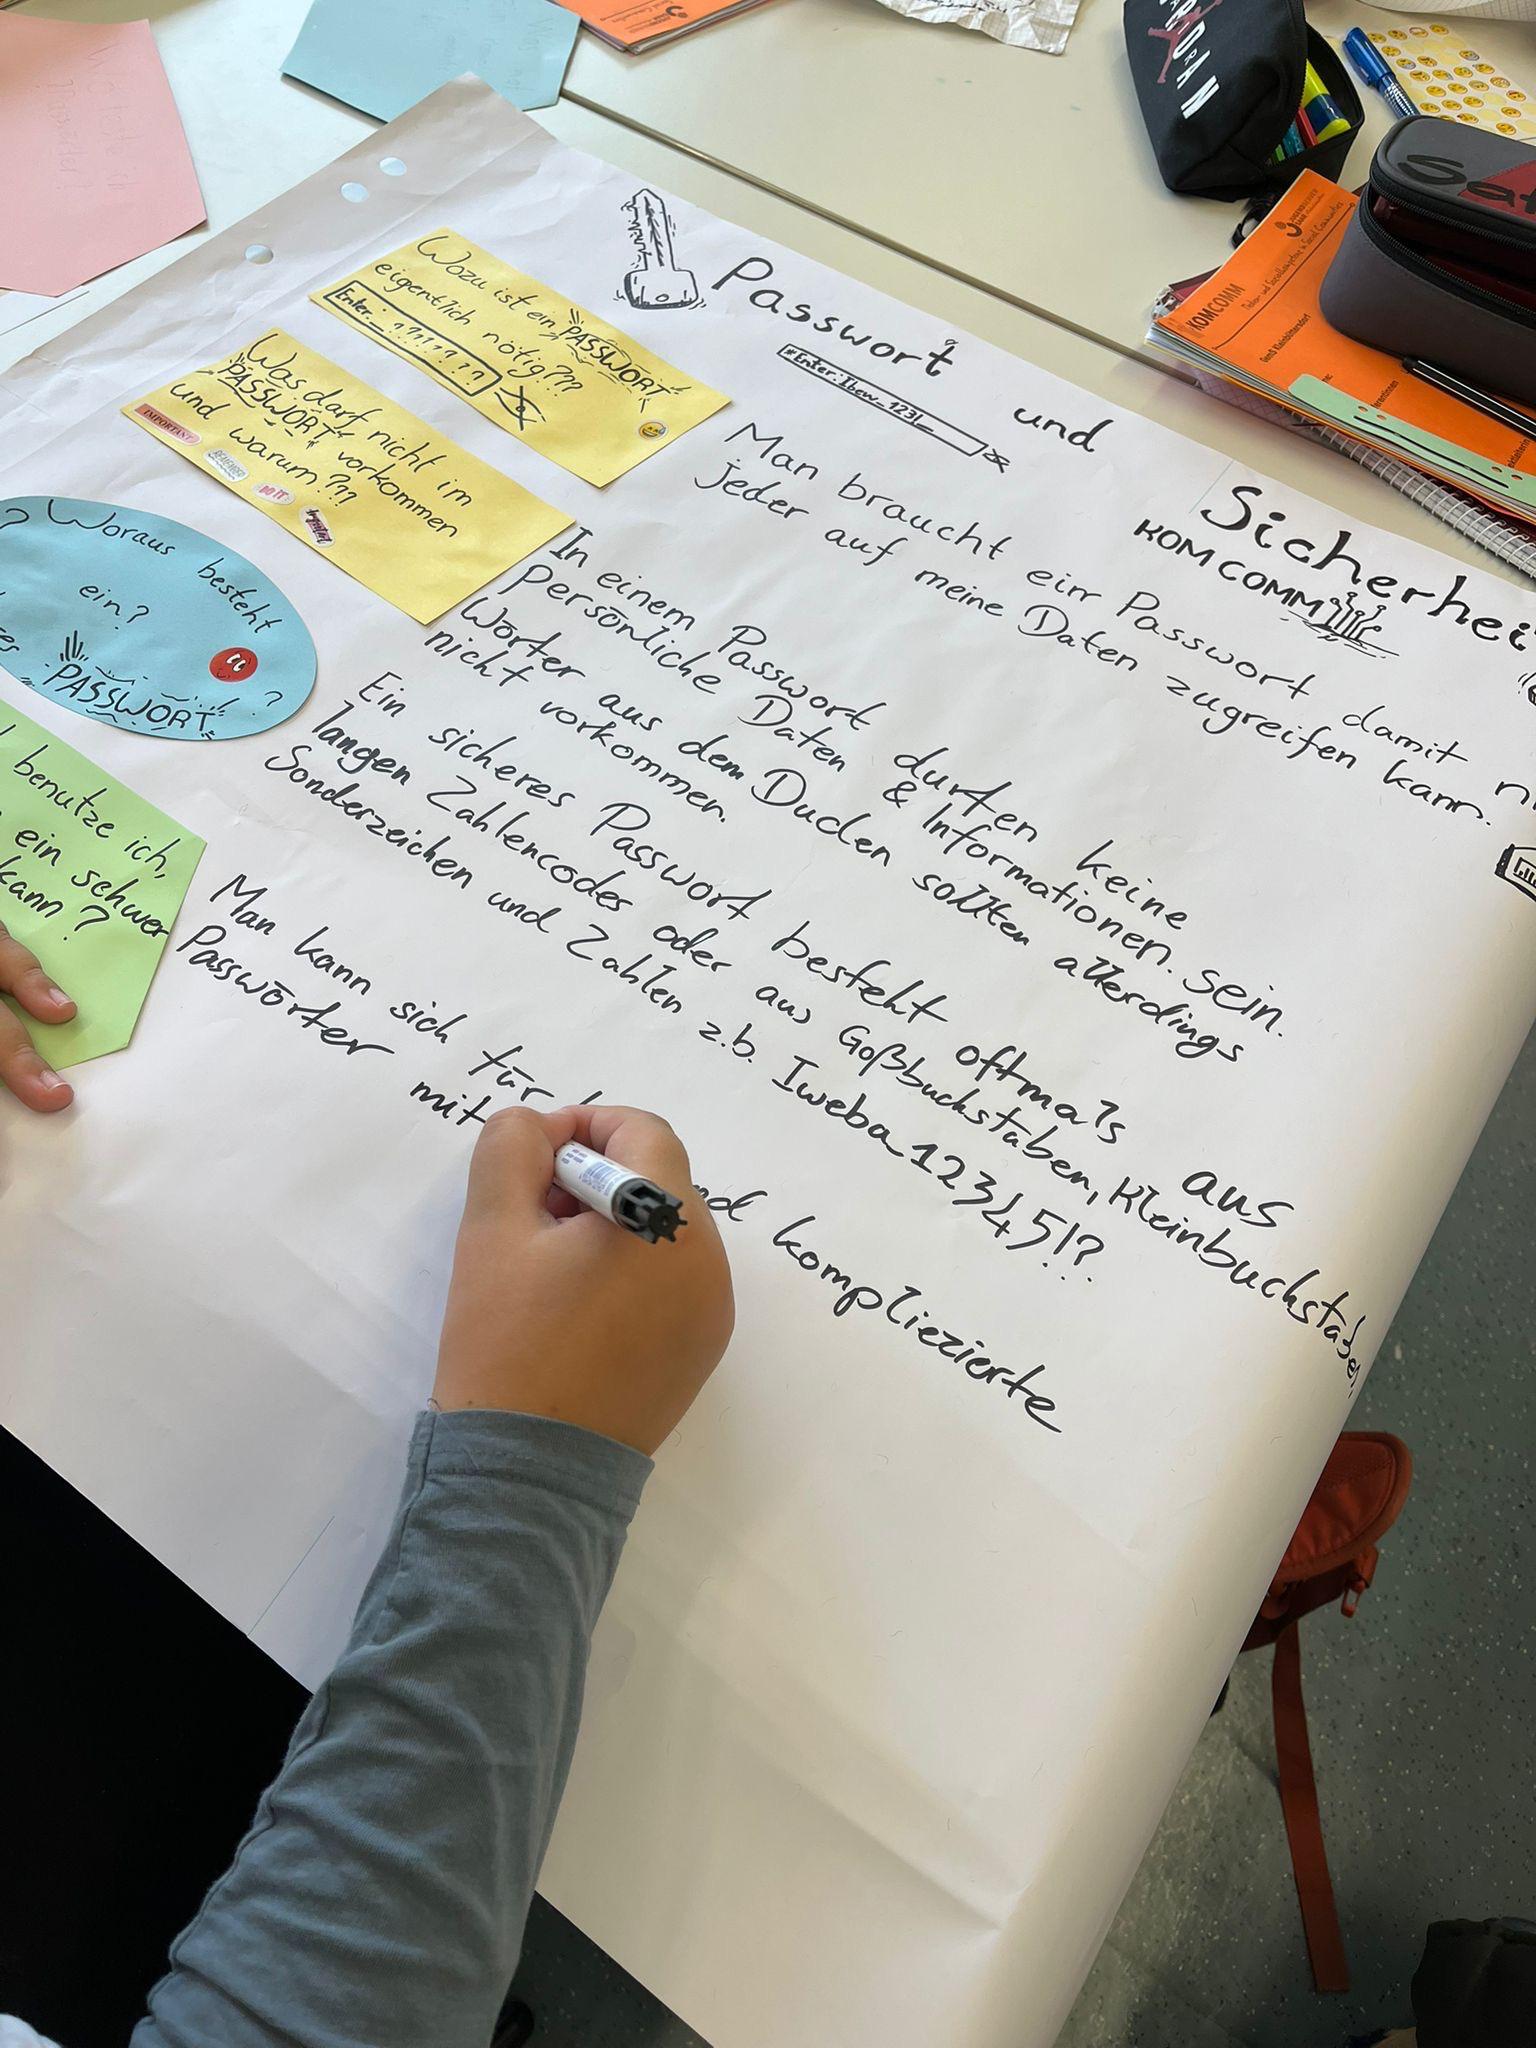 Passwort und Sicherhei
*Enter: Ibew_123!_
KOM COMM
Wozu ist ein PASSWORT
eigentlich nötig???
Enter:_??????
Man braucht ein Passwort damit
jeder auf meine Daten zugreifen kann.
Was darf nicht im
PASSWORT vorkommen
und warum???
IMPORTANT
REMEMBER
DO IT
In einem Passwort dürfen keine
persönliche Daten & Informationen sein.
Wörter aus dem Duden sollten allerdings
nicht vorkommen.
Woraus besteht
ein?
PASSWORT?
Ein sicheres Passwort besteht oftmals aus
langen Zahlencodes oder aus Goßbuchstaben, Kleinbuchstaben,
Sonderzeichen und Zahlen z.b. Iweba_12345!?
benutze ich,
ein schwer
kann?
Man kann sich für komplizierte
Passwörter mit
JORDAN
KOMCOMM